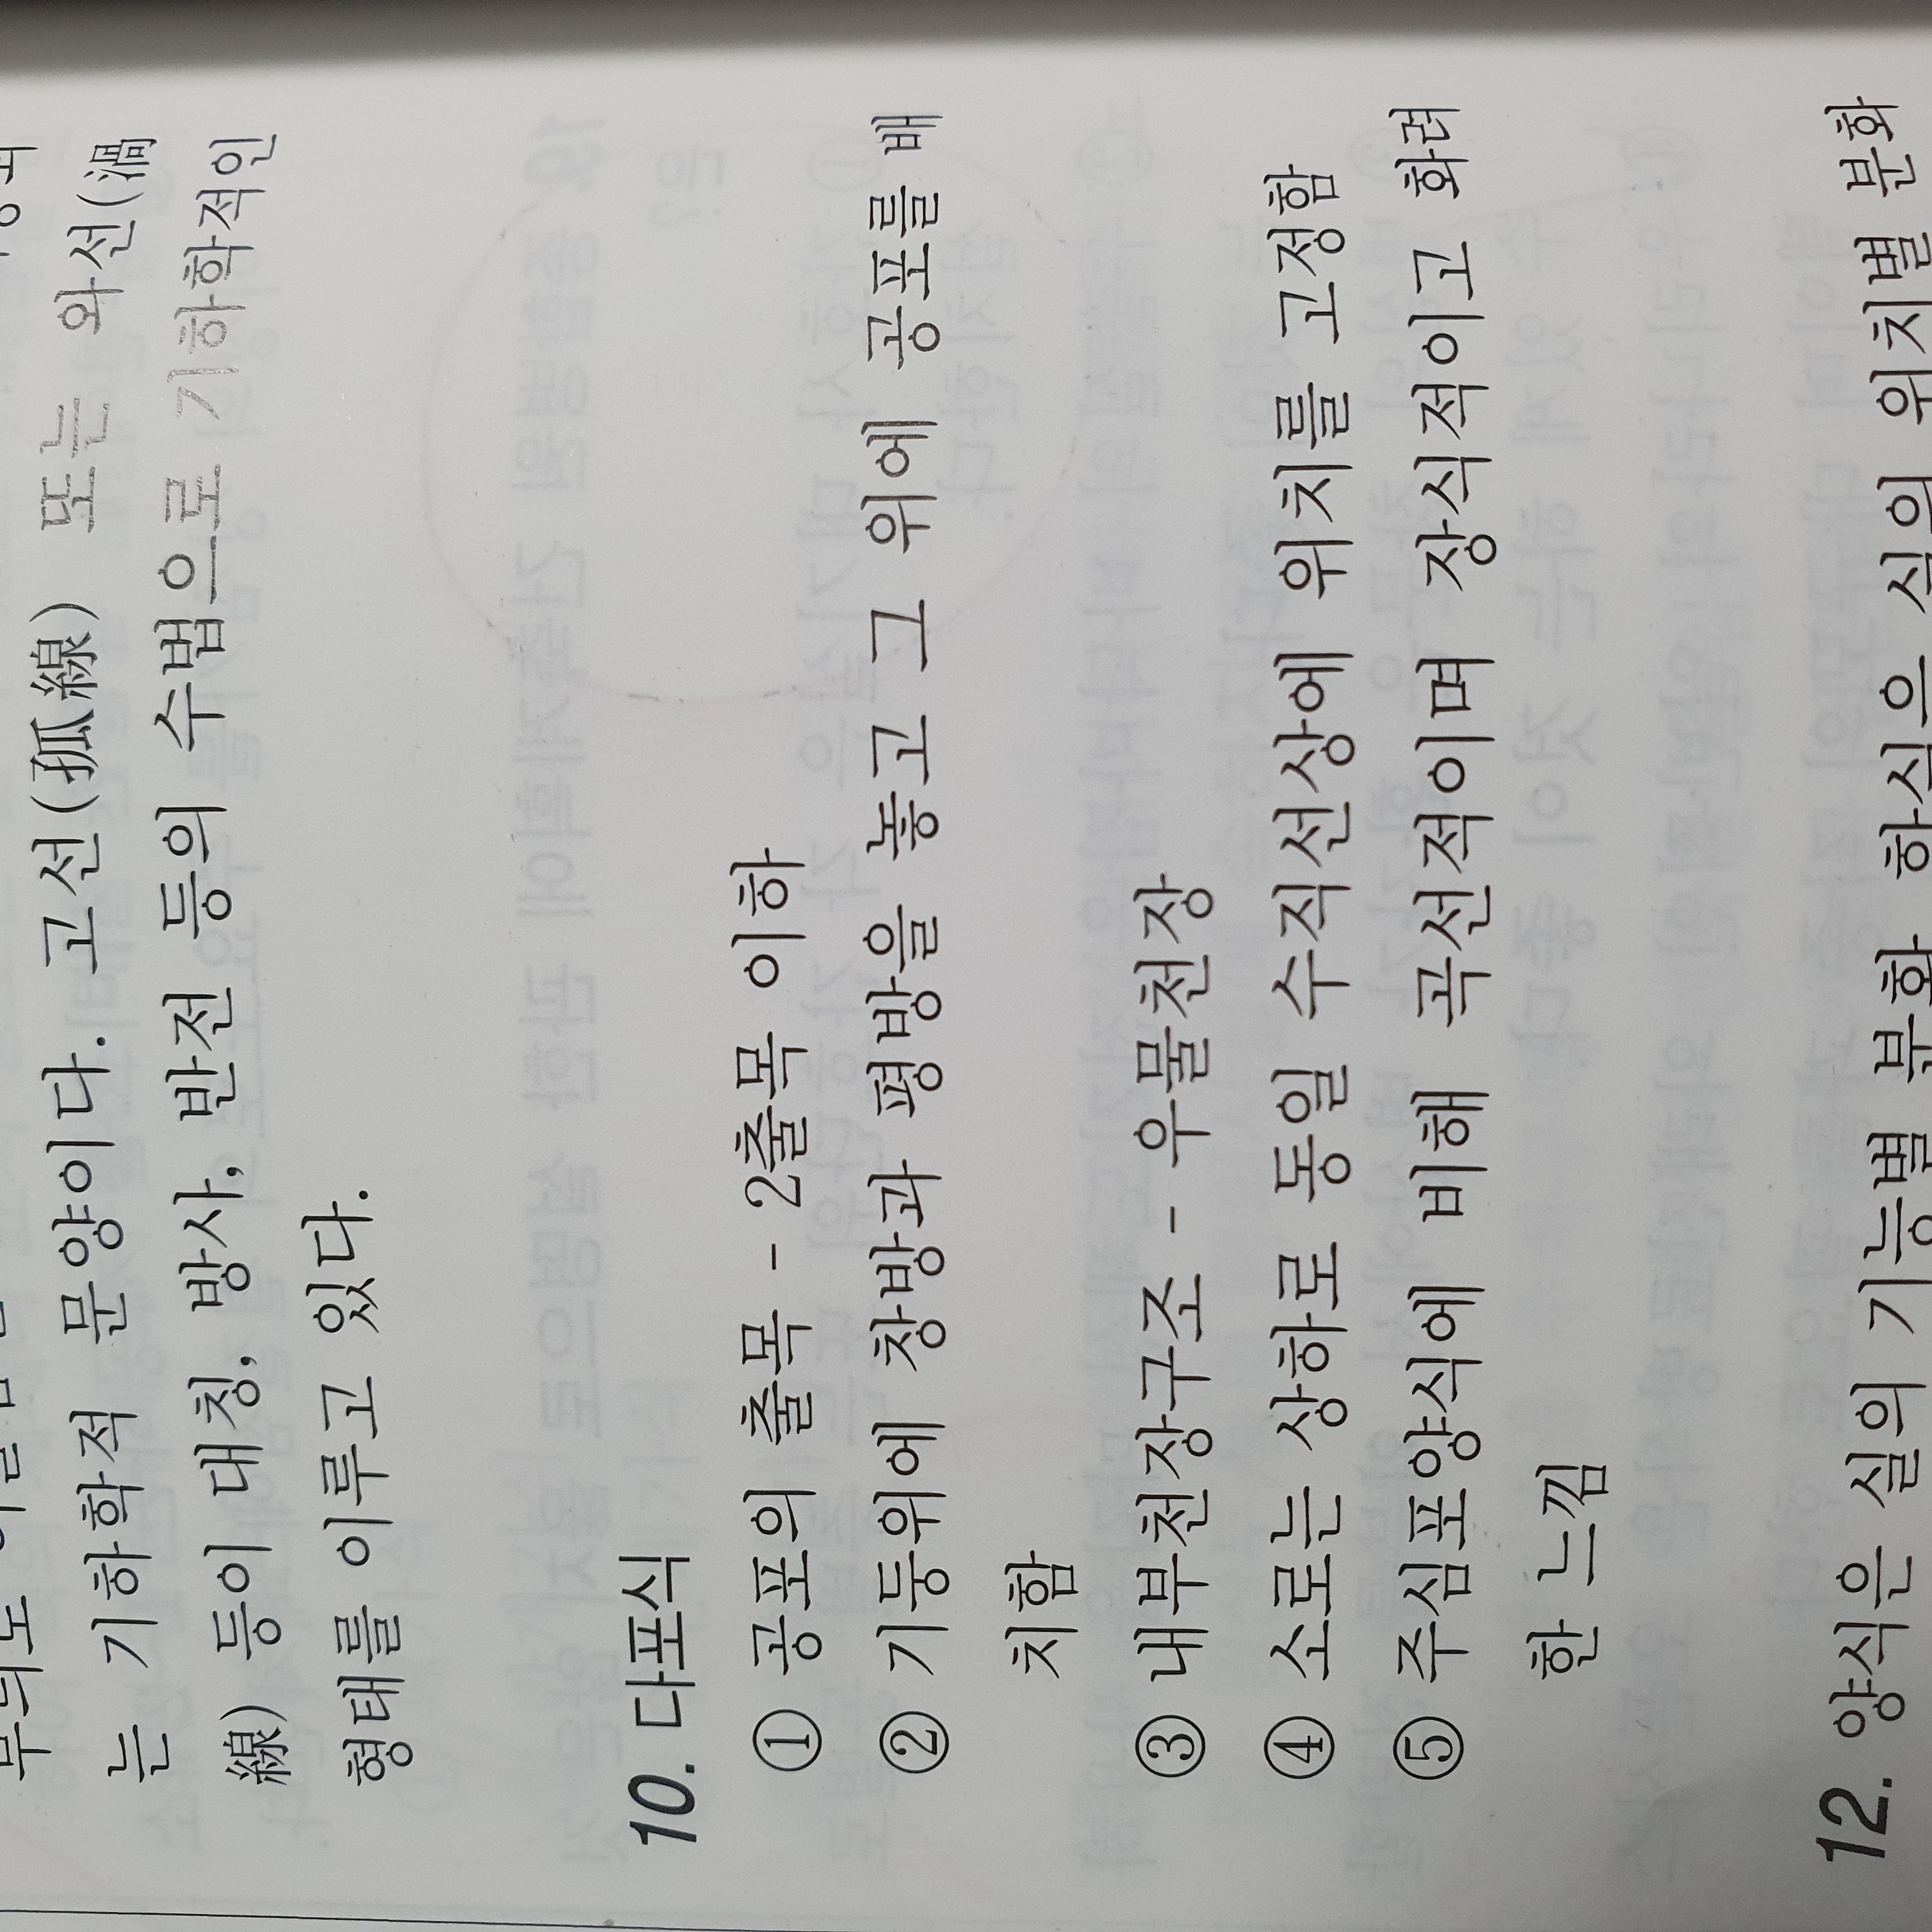 는 기하학적 문양이다. 고선(孤線) 또는 와선(渦
線) 등이 대칭, 방사, 반전 등의 수법으로 기하학적인
형태를 이루고 있다.
10. 다포식
① 공포의 출목 - 2출목 이하
② 기둥위에 창방과 평방을 놓고 그 위에 공포를 배
치함
③ 내부천장구조 - 우물천장
④ 소로는 상하로 동일 수직선상에 위치를 고정함
⑤ 주심포양식에 비해 곡선적이며 장식적이고 화려
한 느낌
12. 양식은 실의 기능별 분화 하식은 식의 위치별 분화